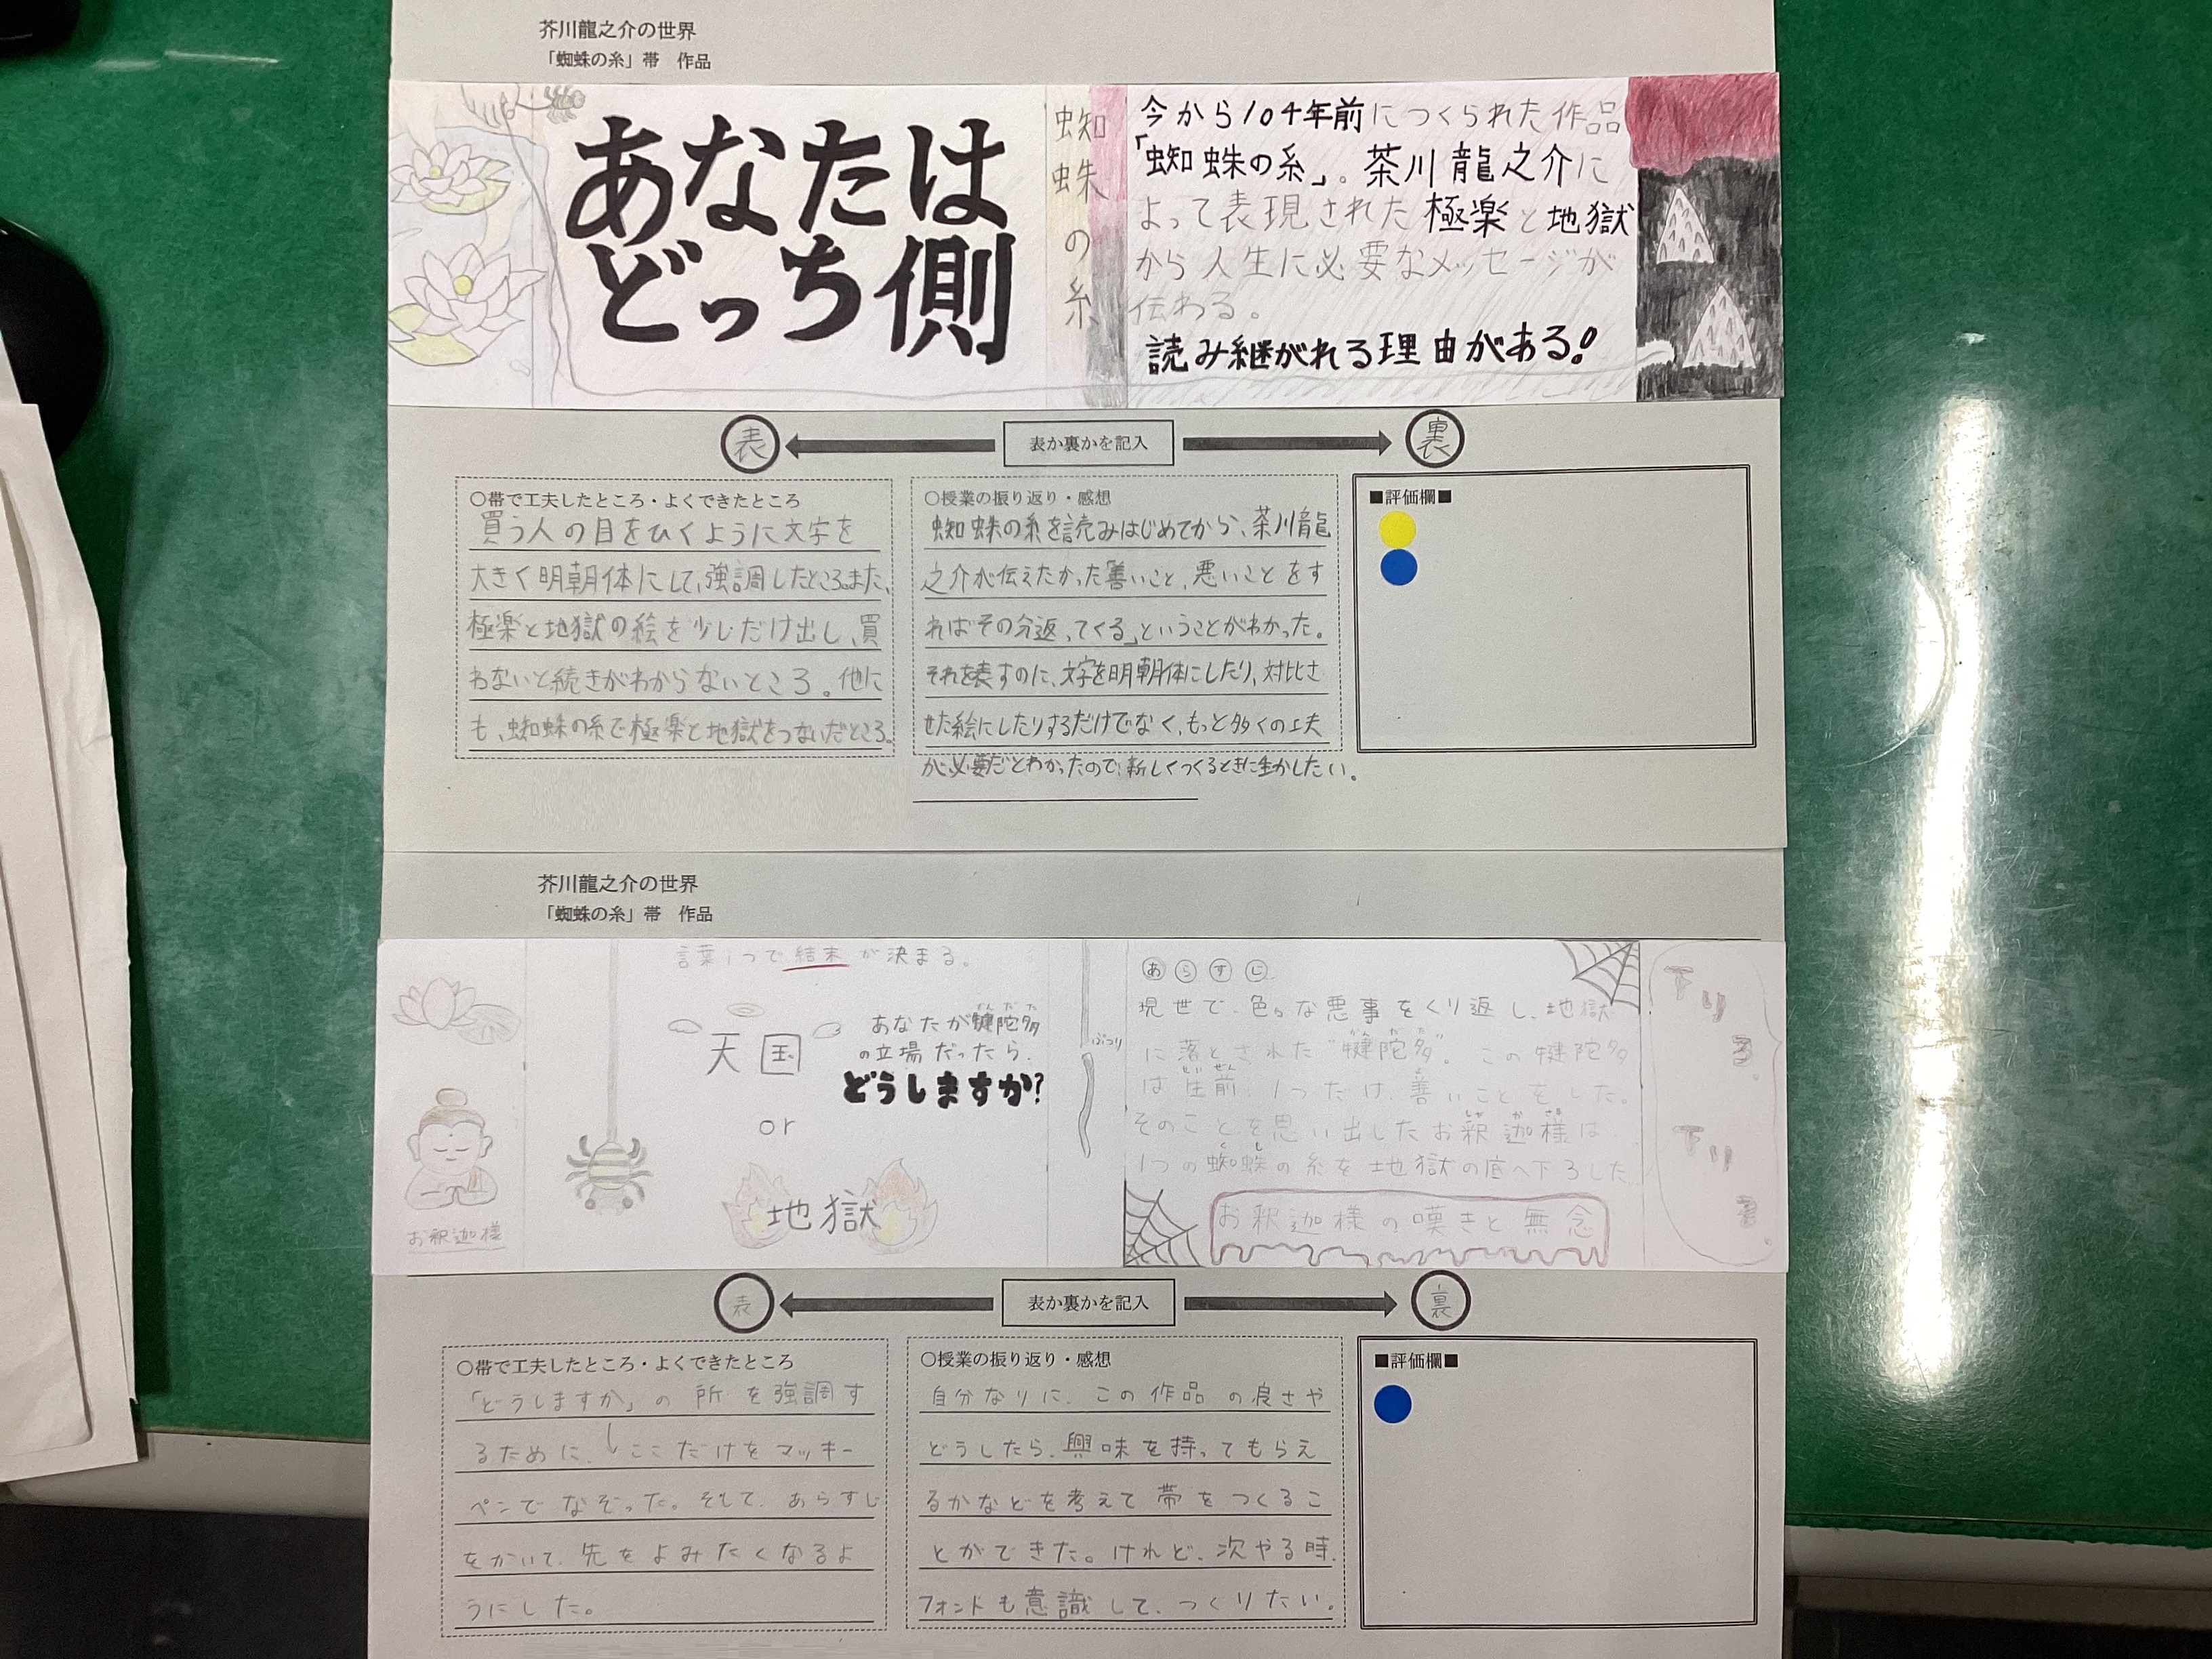 芥川龍之介の世界
「蜘蛛の糸」帯 作品
あなたは
どっち側
蜘蛛の糸
今から104年前につくられた作品
「蜘蛛の糸」。茶川龍之介に
よって表現された極楽と地獄
から人生に必要なメッセージが
伝わる。
読み継がれる理由がある!
表
表か裏かを記入
裏
○帯で工夫したところ・よくできたところ
買う人の目をひくように文字を
大きく明朝体にして、強調したところ。また、
極楽と地獄の絵を少しだけ出し、買
わないと続きがわからないところ。他に
も、蜘蛛の糸で極楽と地獄をつないだところ。
○授業の振り返り・感想
蜘蛛の糸を読みはじめてから、茶川龍
之介が伝えたかった「善いこと、悪いことをす
ればその分返ってくる」ということがわかった。
それを表すのに、文字を明朝体にしたり、対比さ
せた絵にしたりするだけでなく、もっと多くの工夫
が必要だとわかったので、新しくつくるときに生かしたい。
■評価欄■
芥川龍之介の世界
「蜘蛛の糸」帯 作品
お釈迦様
言葉1つで結末が決まる。
天国
or
地獄
あなたが犍陀多
かんだた
の立場だったら、
どうしますか?
ぷつり
あらすじ
現世で、色々な悪事をくり返し、地獄
に落とされた"犍陀多"。この犍陀多
かんだた
は生前、1つだけ、善いことをした。
せいぜん
よ
そのことを思い出したお釈迦様は
しゃかさま
1つの蜘蛛の糸を地獄の底へ下ろした。
くも
お釈迦様の嘆きと無念
表
表か裏かを記入
裏
○帯で工夫したところ・よくできたところ
「どうしますか」の所を強調す
るために、ここだけをマッキー
ペンでなぞった。そして、あらすじ
をかいて、先をよみたくなるよ
うにした。
○授業の振り返り・感想
自分なりに、この作品の良さや
どうしたら、興味を持ってもらえ
るかなどを考えて帯をつくるこ
とができた。けれど、次やる時、
フォントも意識して、つくりたい。
■評価欄■